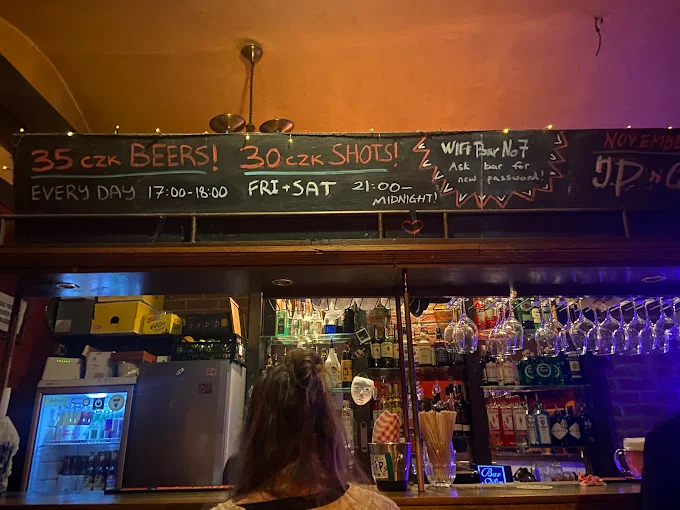 35 CZK BEERS!
EVERY DAY 17:00-18:00
30 CZK SHOTS!
FRI + SAT 21:00-
MIDNIGHT!
WIFI Bar No7
Ask bar for
new password!
NOVEMBE
JD N C
Bar